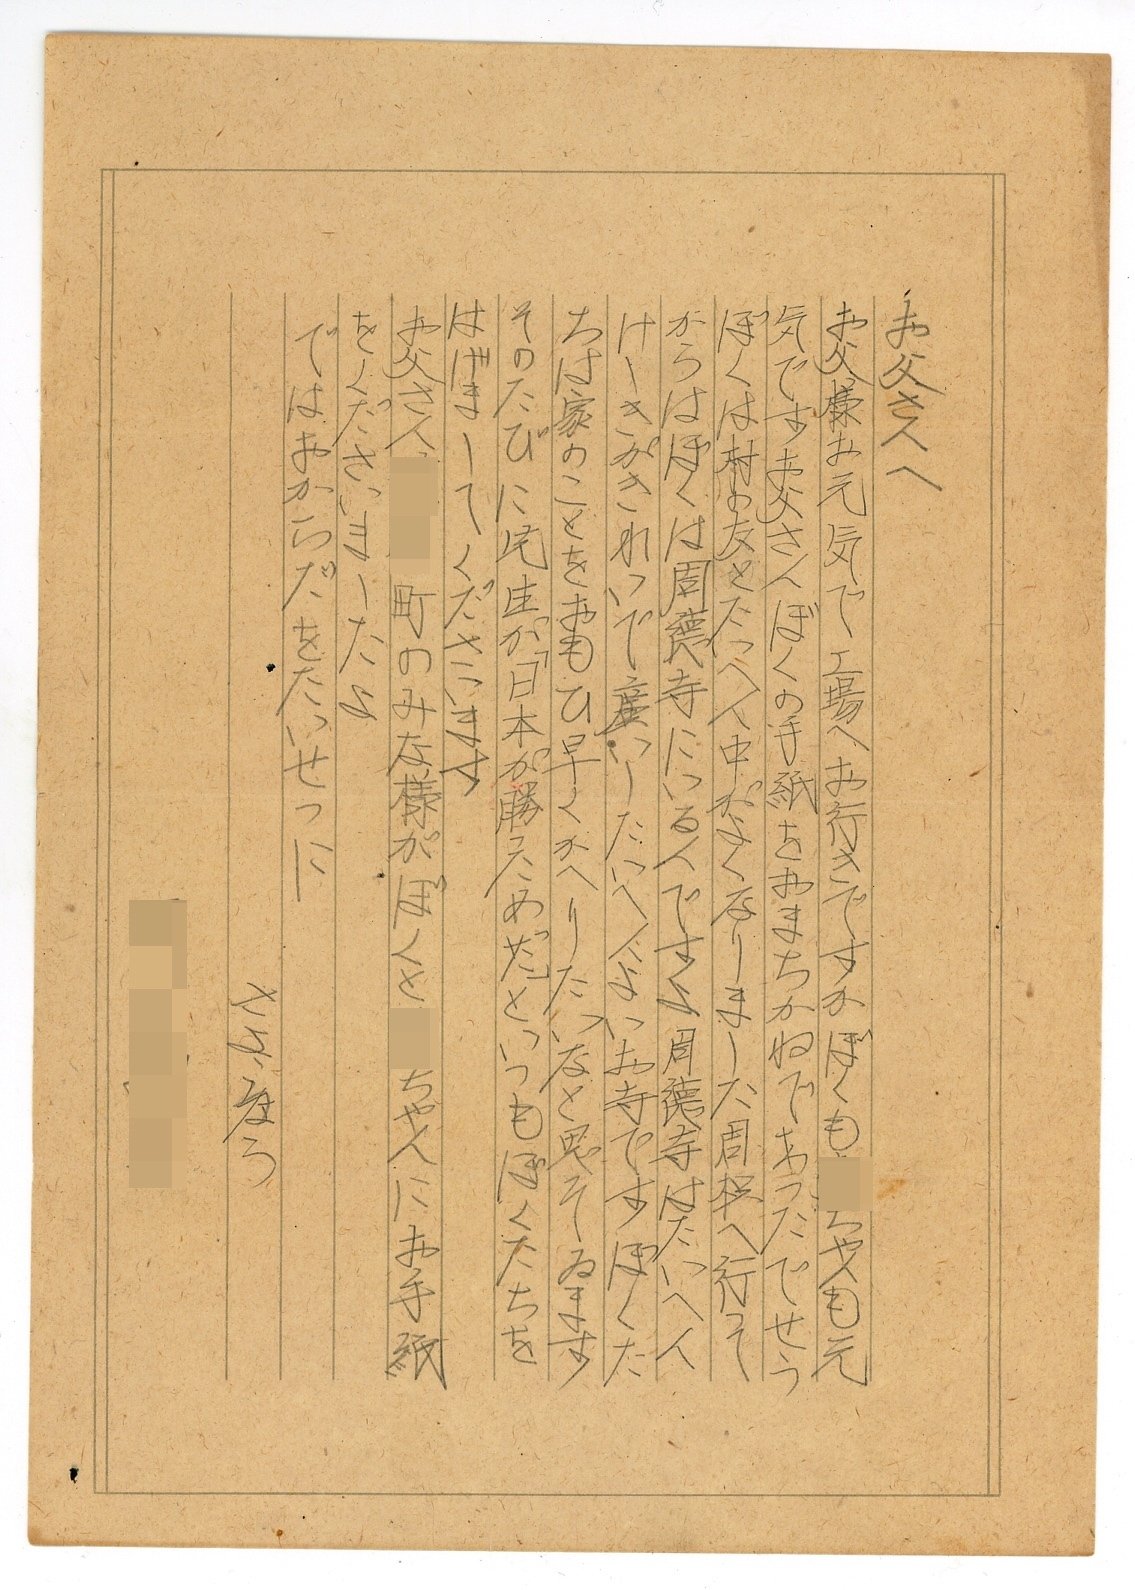 お父さんへ
お父様お元気で工場へお行きですかぼくも ちやんも元
気ですお父さんぼくの手紙をおまちかねであつたでせう
ぼくは村の友とたいへん中がよくなりました周 へ行つて
からはぼくは周徳寺にいる人ですよ周徳寺はたいへん
けしきがきれいで いしたいへんよいお寺ですぼくた
ちは家のことをおもひ早くかへりたいなと思そゐます
そのたびに先生が「日本が勝ためだ」といつもぼくたちを
はげましてくださいます
お父さん 町のみな様がぼくと ちやんにお手紙
をくださいましたよ
ではおからだをたいせつに
さようなら